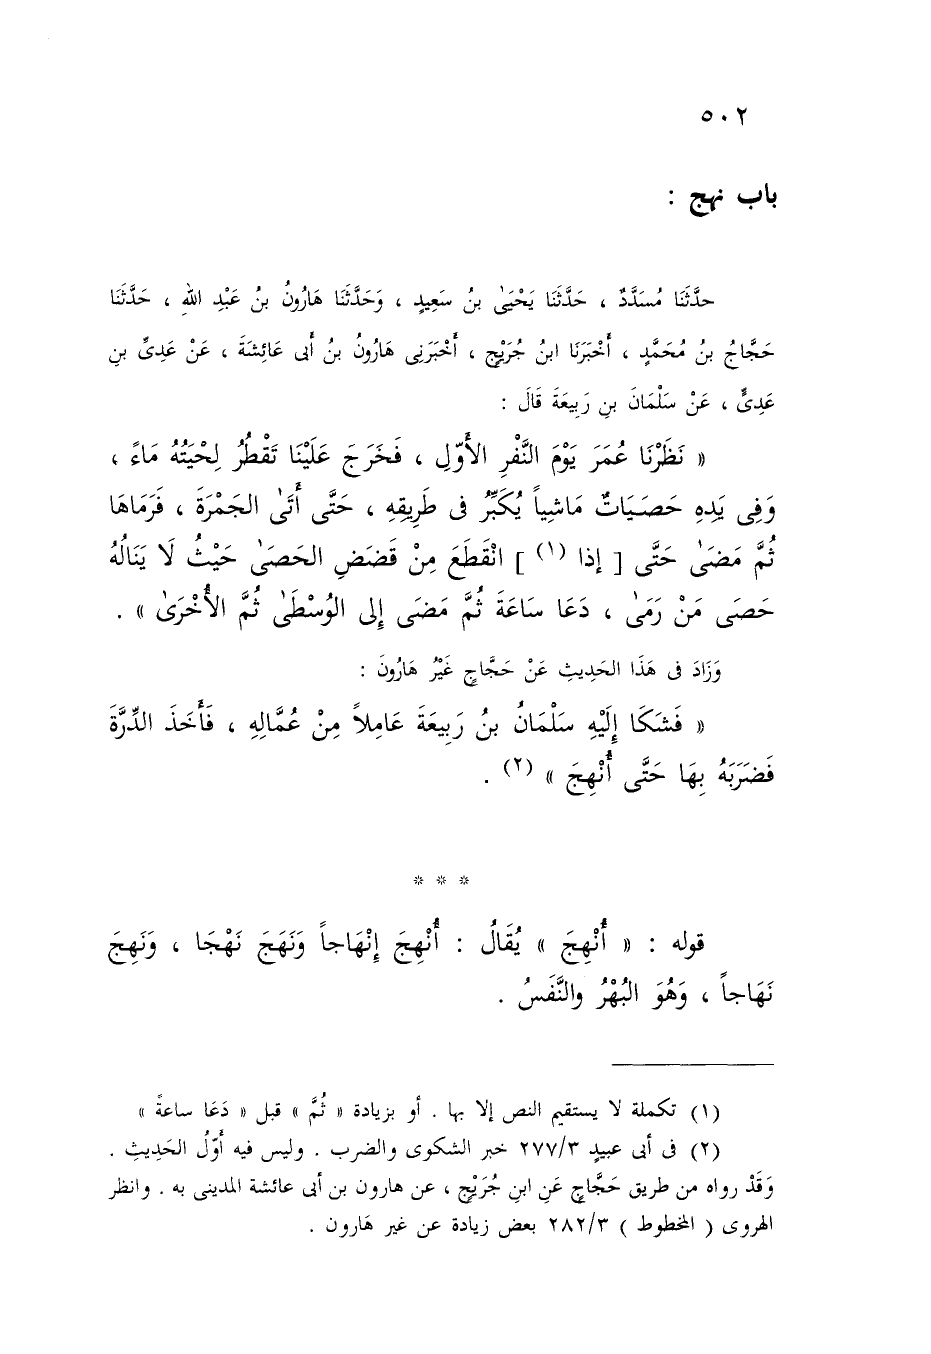 ٥٠٢
باب نهج :
حدَّثنَا مُسَدَّدٌ ، حَدَّثنَا يَحْيَىٰ بنُ سَعِيدٍ ، وَحَدَّثنَا هَارُونُ بنُ عَبْدِ اللهِ ، حَدَّثنَا
حَجَّاجُ بنُ مُحَمَّدٍ ، أَخْبَرَنَا ابنُ جُرَيْجٍ ، أَخْبَرَنِى هَارُونُ بنُ أَبى عَائِشَةَ ، عَنْ عَدِىِّ بنِ
عَدِىٍّ ، عَنْ سَلْمَانَ بنِ رَبِيعَةَ قَالَ :
« نَظَرْنَا عُمَرَ يَوْمَ النَّفْرِ الأَوّلِ ، فَخَرَجَ عَلَيْنَا تَقْطُرُ لِحْيَتُهُ مَاءً ،
وَفِى يَدِهِ حَصَيَاتٌ مَاشِياً يُكَبِّرُ فى طَرِيقِهِ ، حَتَّى أَتَىٰ الجَمْرَةَ ، فَرَمَاهَا
ثُمَّ مَضَىٰ حَتَّى [ إذا (١) ] انْقَطَعَ مِنْ فَضَضِ الحَصَىٰ حَيْثُ لَا يَنَالُهُ
حَصَى مَنْ رَمَىٰ ، دَعَا سَاعَةَ ثُمَّ مَضَى إِلى الوُسْطَىٰ ثُمَّ الأُخْرَىٰ » .
وَزَادَ فى هَذَا الحَدِيثِ عَنْ حَجَّاجٍ غَيْرُ هَارُونَ :
« فَشَكَا إِلَيْهِ سَلْمَانُ بنُ رَبِيعَةَ عَامِلاً مِنْ عُمَّالِهِ ، فَأَخَذَ الدِّرَّةَ
فَضَرَبَهُ بِهَا حَتَّى أُنْهِجَ » (٢) .
* * *
قوله : « أُنْهِجَ » يُقَالُ : أُنْهِجَ إِنْهَاجاً وَنَهَجَ نَهْجَا ، وَنَهِجَ
نَهَاجاً ، وَهُوَ البُهْرُ والنَّفَسُ .
(١) تكملة لا يستقيم النص إلا بها . أو بزيادة « ثُمَّ » قبل « دَعَا ساعةً »
(٢) فى أبى عبيدٍ ٢٧٧/٣ خبر الشكوى والضرب . وليس فيه أَوّلُ الحَدِيثِ .
وَقَدْ رواه من طريق حَجَّاجٍ عَنِ ابنِ جُرَيْجٍ ، عن هارون بن أبى عائشة المدينى به . وانظر
الهروى ( المخطوط ) ٢٨٢/٣ بعض زيادة عن غير هَارون .